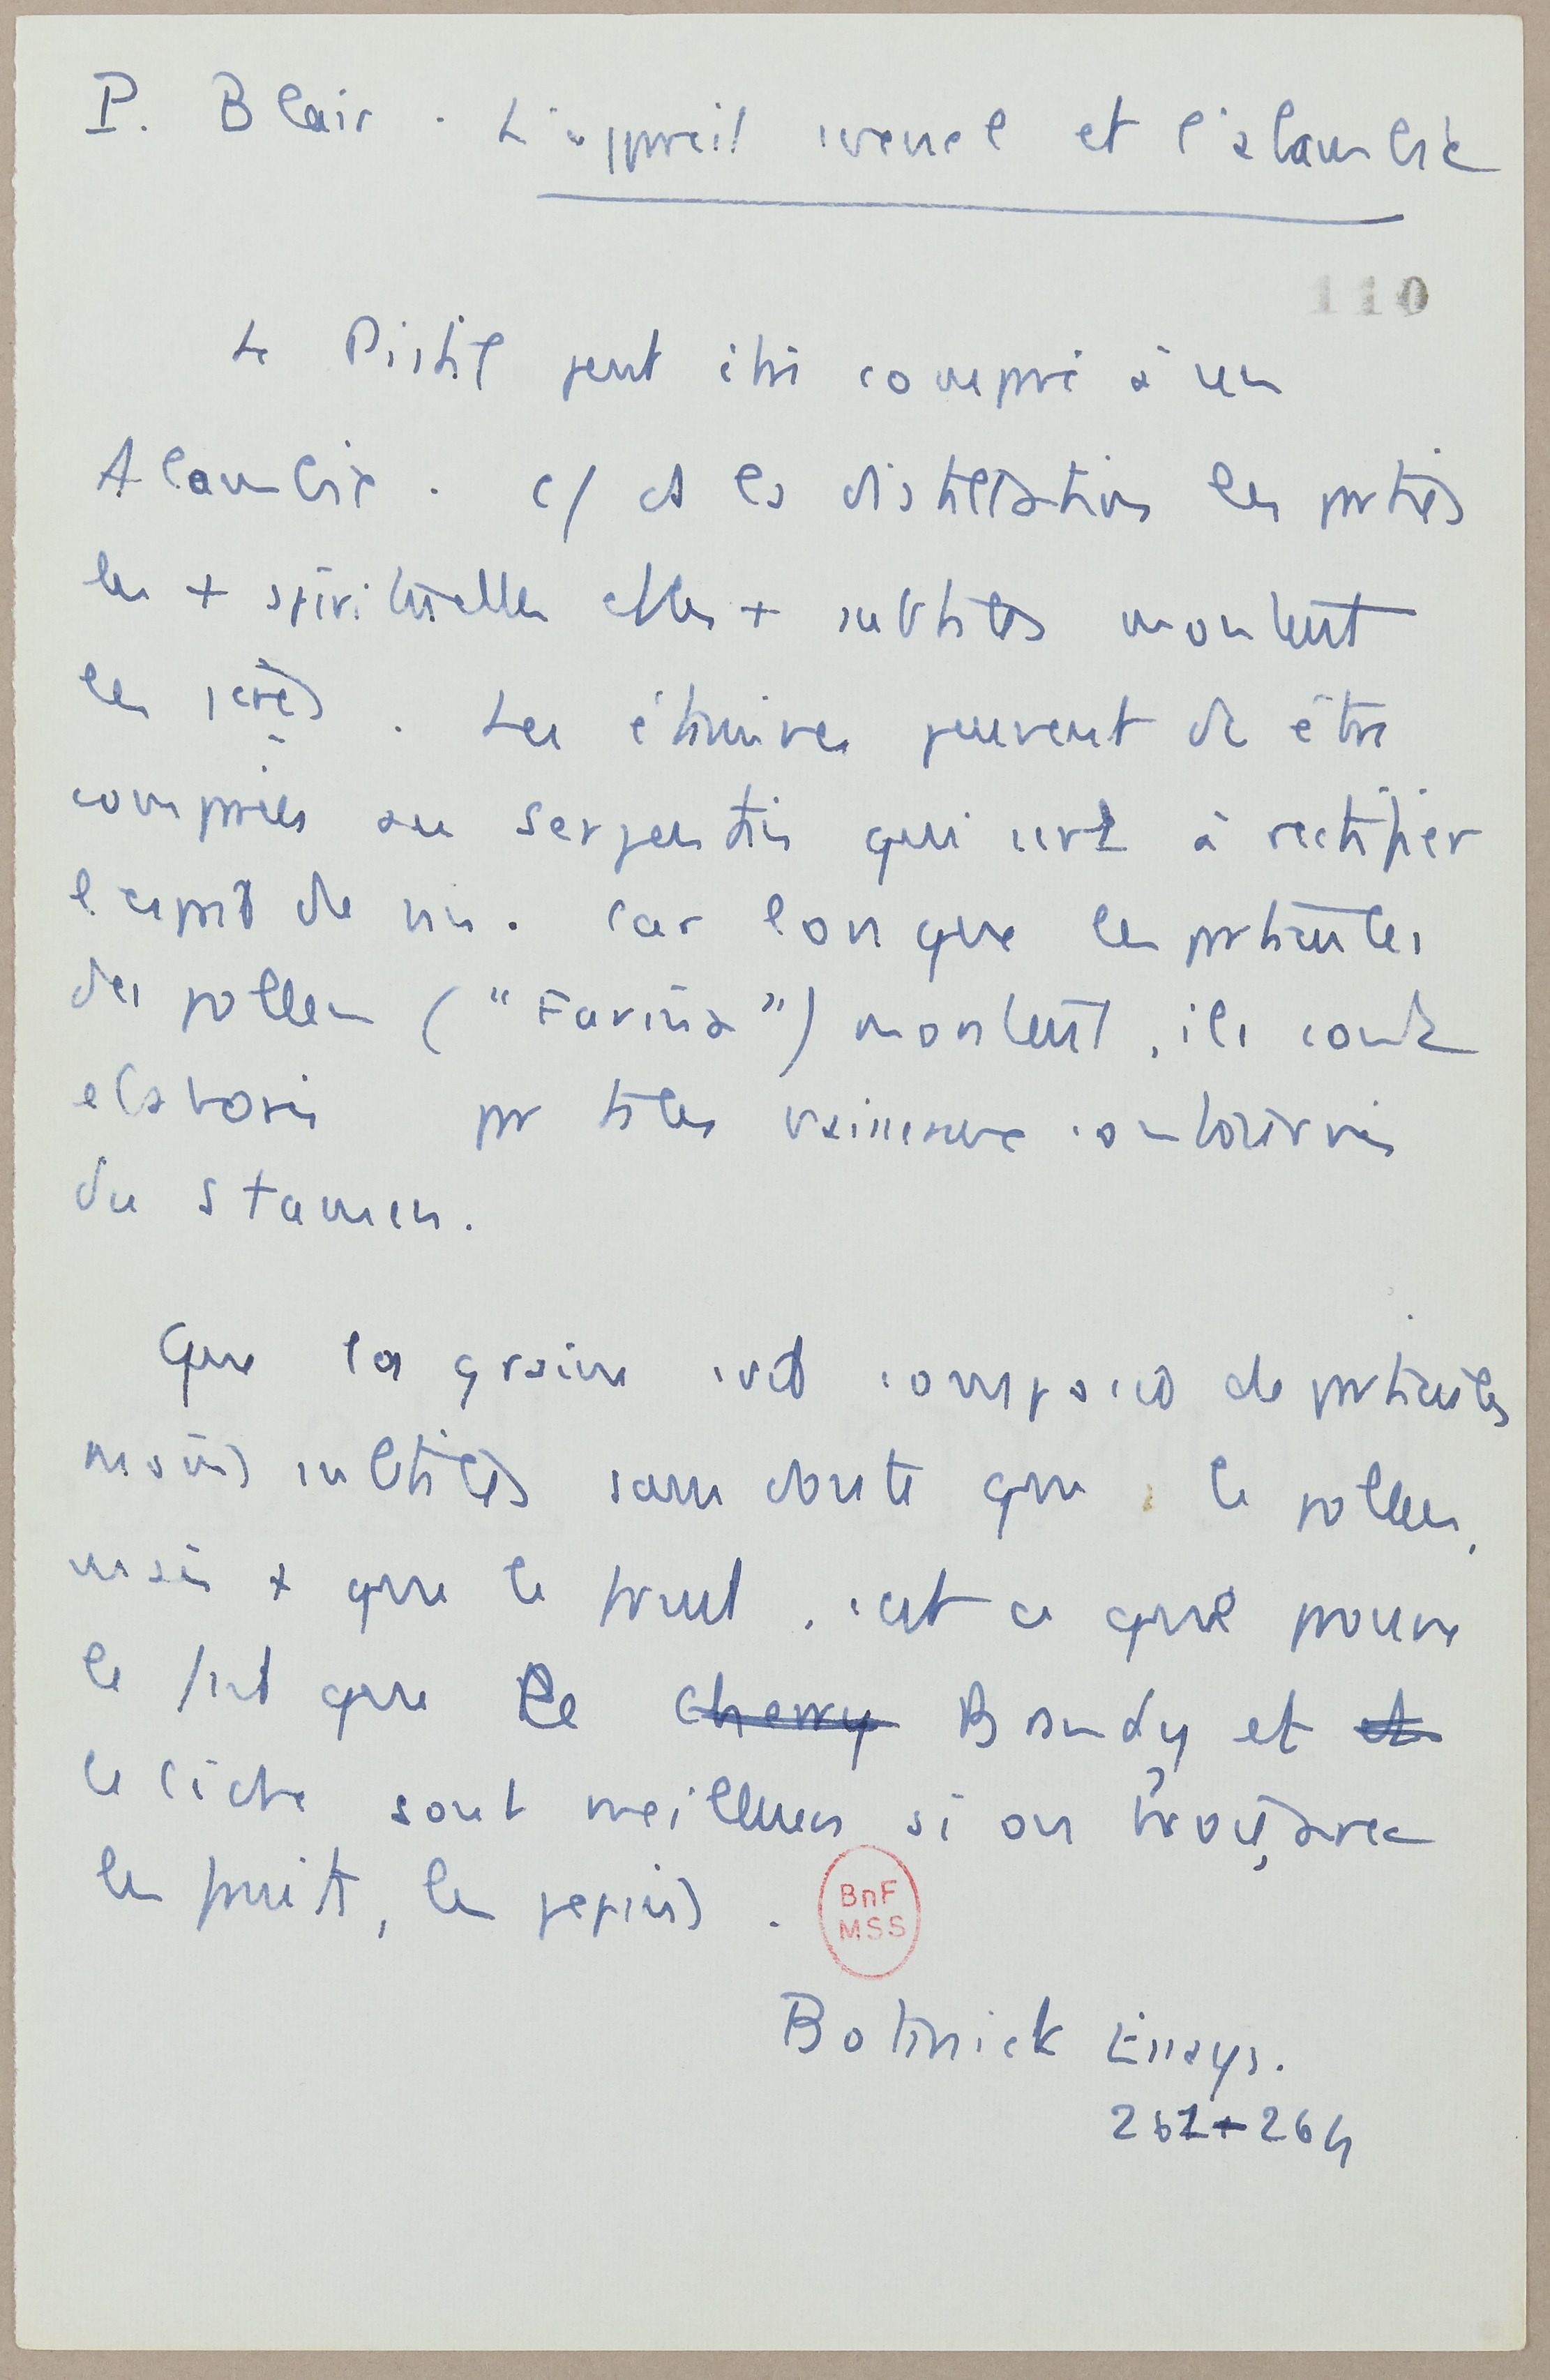 P. Blair. L'appareil sexuel et l'alambic
110
Le Pistil peut être comparé à un
Alambic. c/ ds les distillations les parties
les + spirituelles et les + subtiles montent
les 1ères. Les étamines peuvent dc être
comparées au serpentin qui sert à rectifier
l'esprit de vin. Car lorsque les particules
des pollen ("Farina") montent, ils sont
elaborés par les vaisseaux contournés
du stamen.
Que la graine soit composée de particules
moins subtiles sans doute que le pollen,
mais + que le fruit, c'est ce que prouve
le fait que le cherry Brandy et et
le cidre sont meilleurs si on broie, avec
les fruits, les pepins.
BnF
MSS
Botanick Essays.
262-264